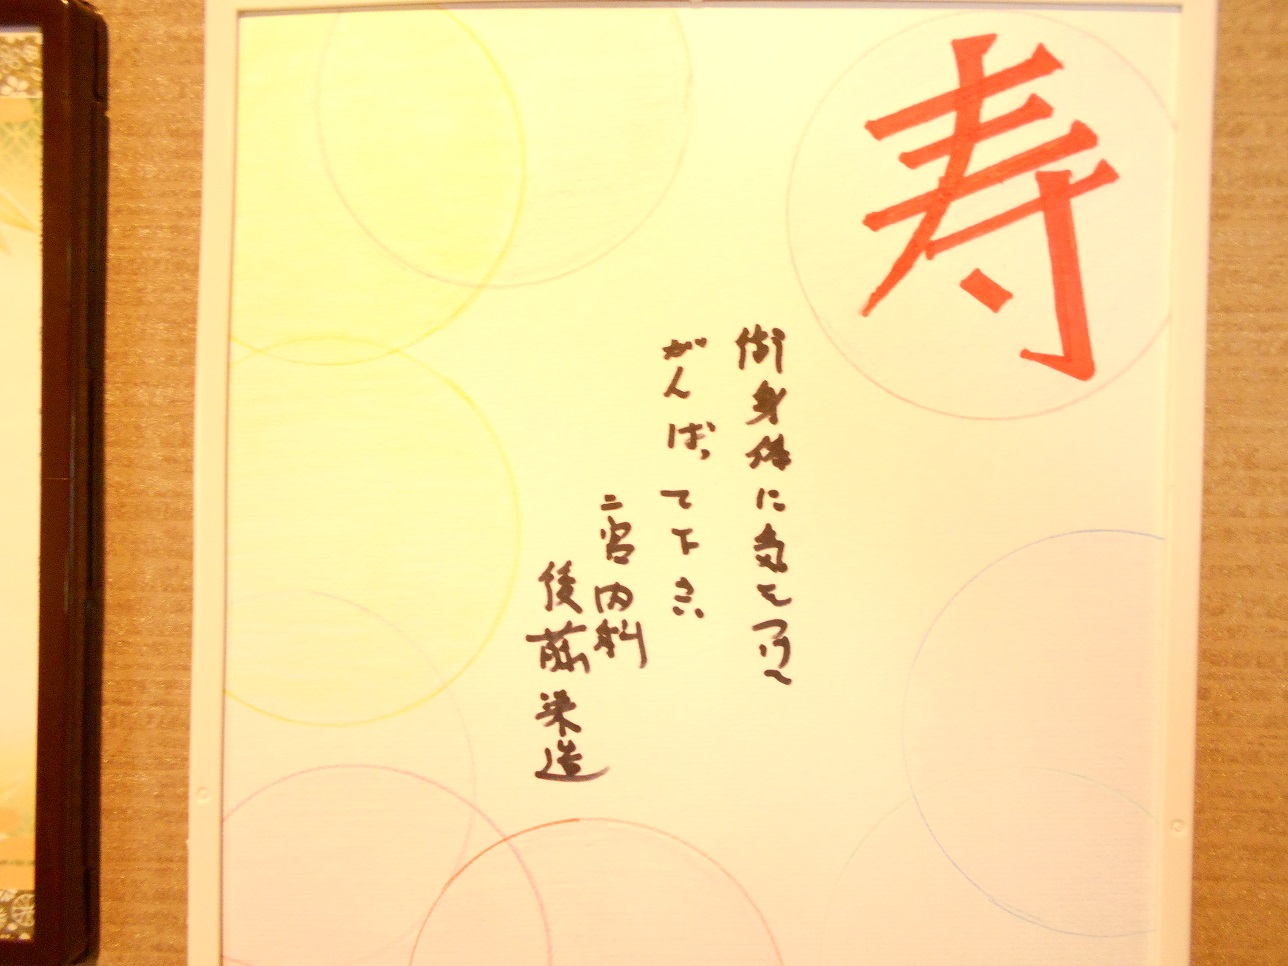 寿
御身体に気をつけて
がんばって下さい
二宮内科
後藤栄造